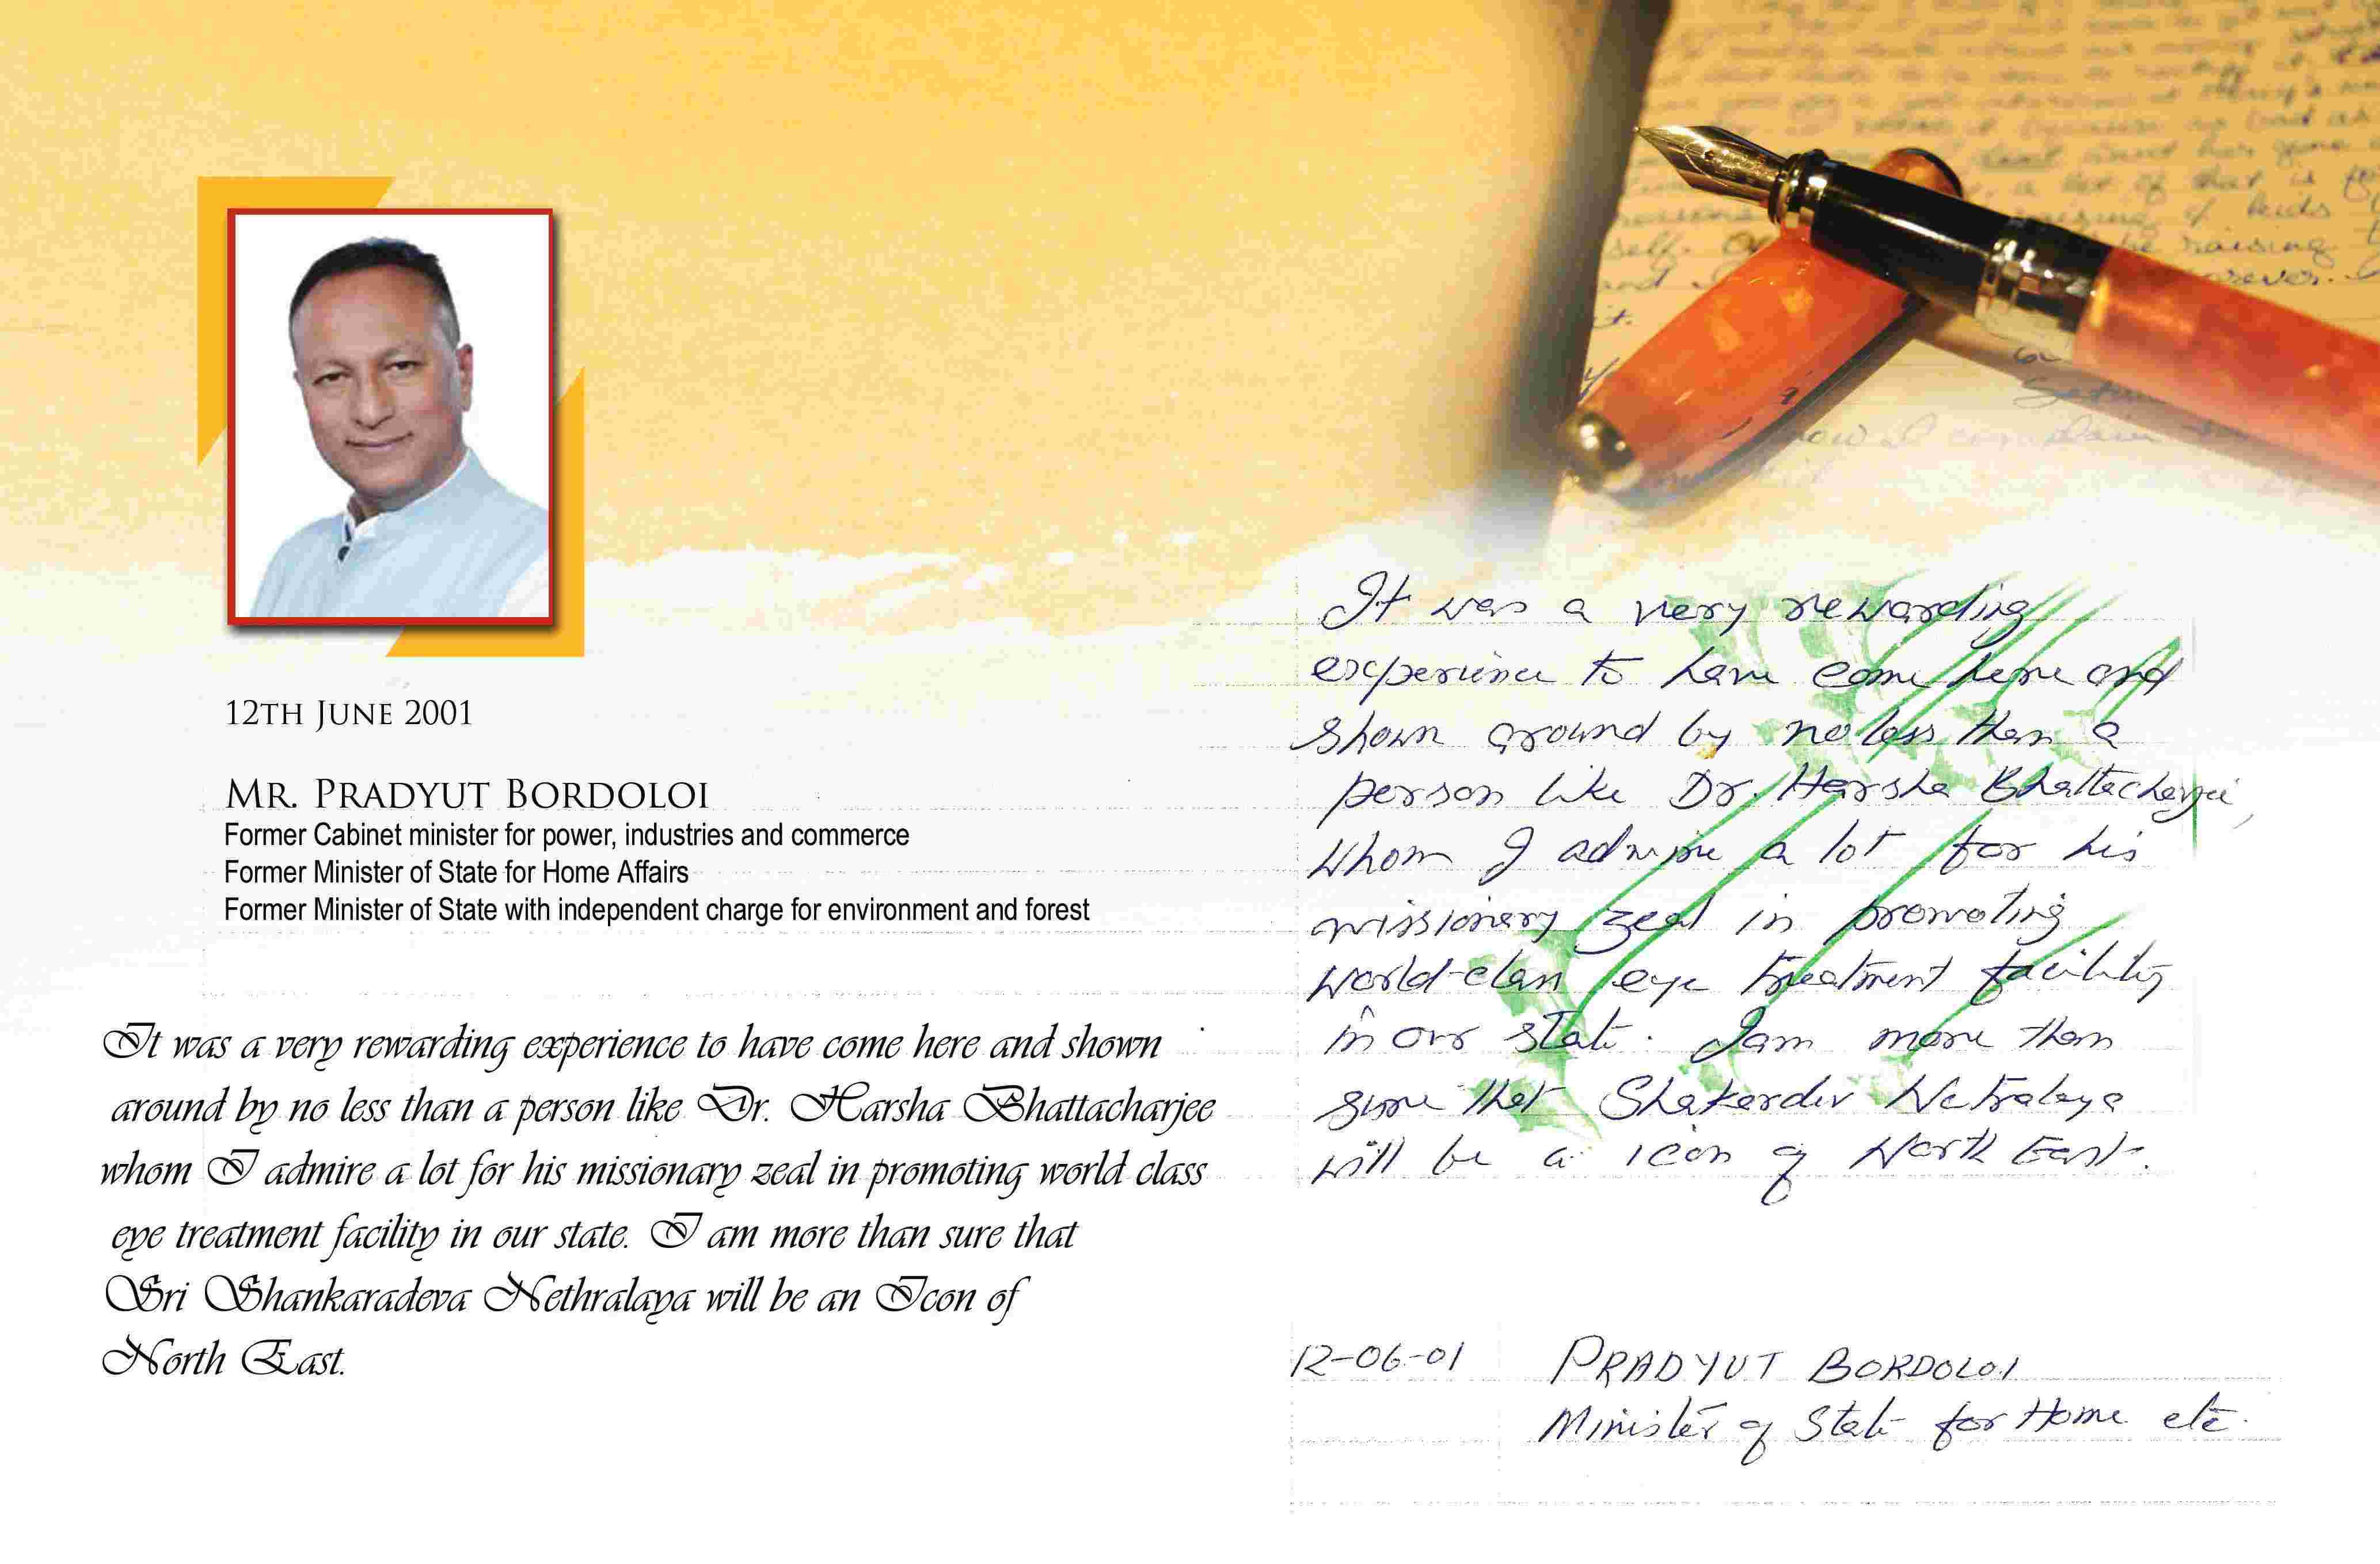 12TH JUNE 2001
MR. PRADYUT BORDOLOI
Former Cabinet minister for power, industries and commerce
Former Minister of State for Home Affairs
Former Minister of State with independent charge for environment and forest
It was a very rewarding experience to have come here and shown
around by no less than a person like Dr. Harsha Bhattacharjee
whom I admire a lot for his missionary zeal in promoting world class
eye treatment facility in our state. I am more than sure that
Sri Shankaradeva Nethralaya will be an Icon of
North East.
It was a very rewarding
experience to have come here and
shown around by no less than a
person like Dr. Harsha Bhattacharjee,
whom I admire a lot for his
missionary zeal in promoting
world-class eye treatment facility
in our state. I am more than
sure that Shakardev Netralaya
will be a icon of North East.
12-06-01 PRADYUT BORDOLOI
Minister of State for Home etc.